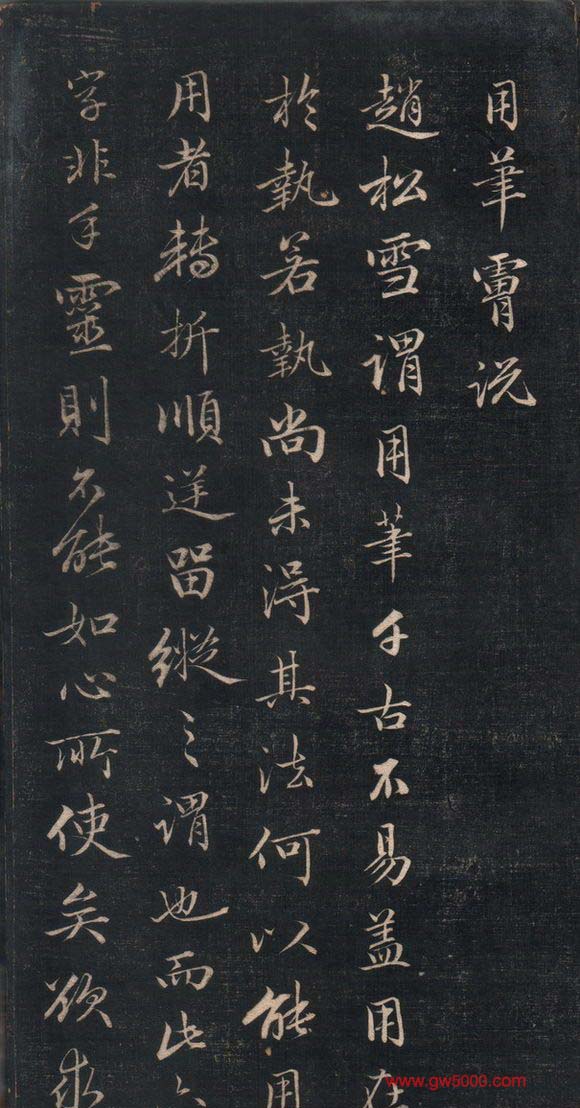 用筆說
趙松雪謂用筆千古不易盖用在
於執若執尚未得其法何以能用
用者轉折順逆留縱之謂也而此
字非手靈則不能如心所使矣欲求
www.gw5000.com